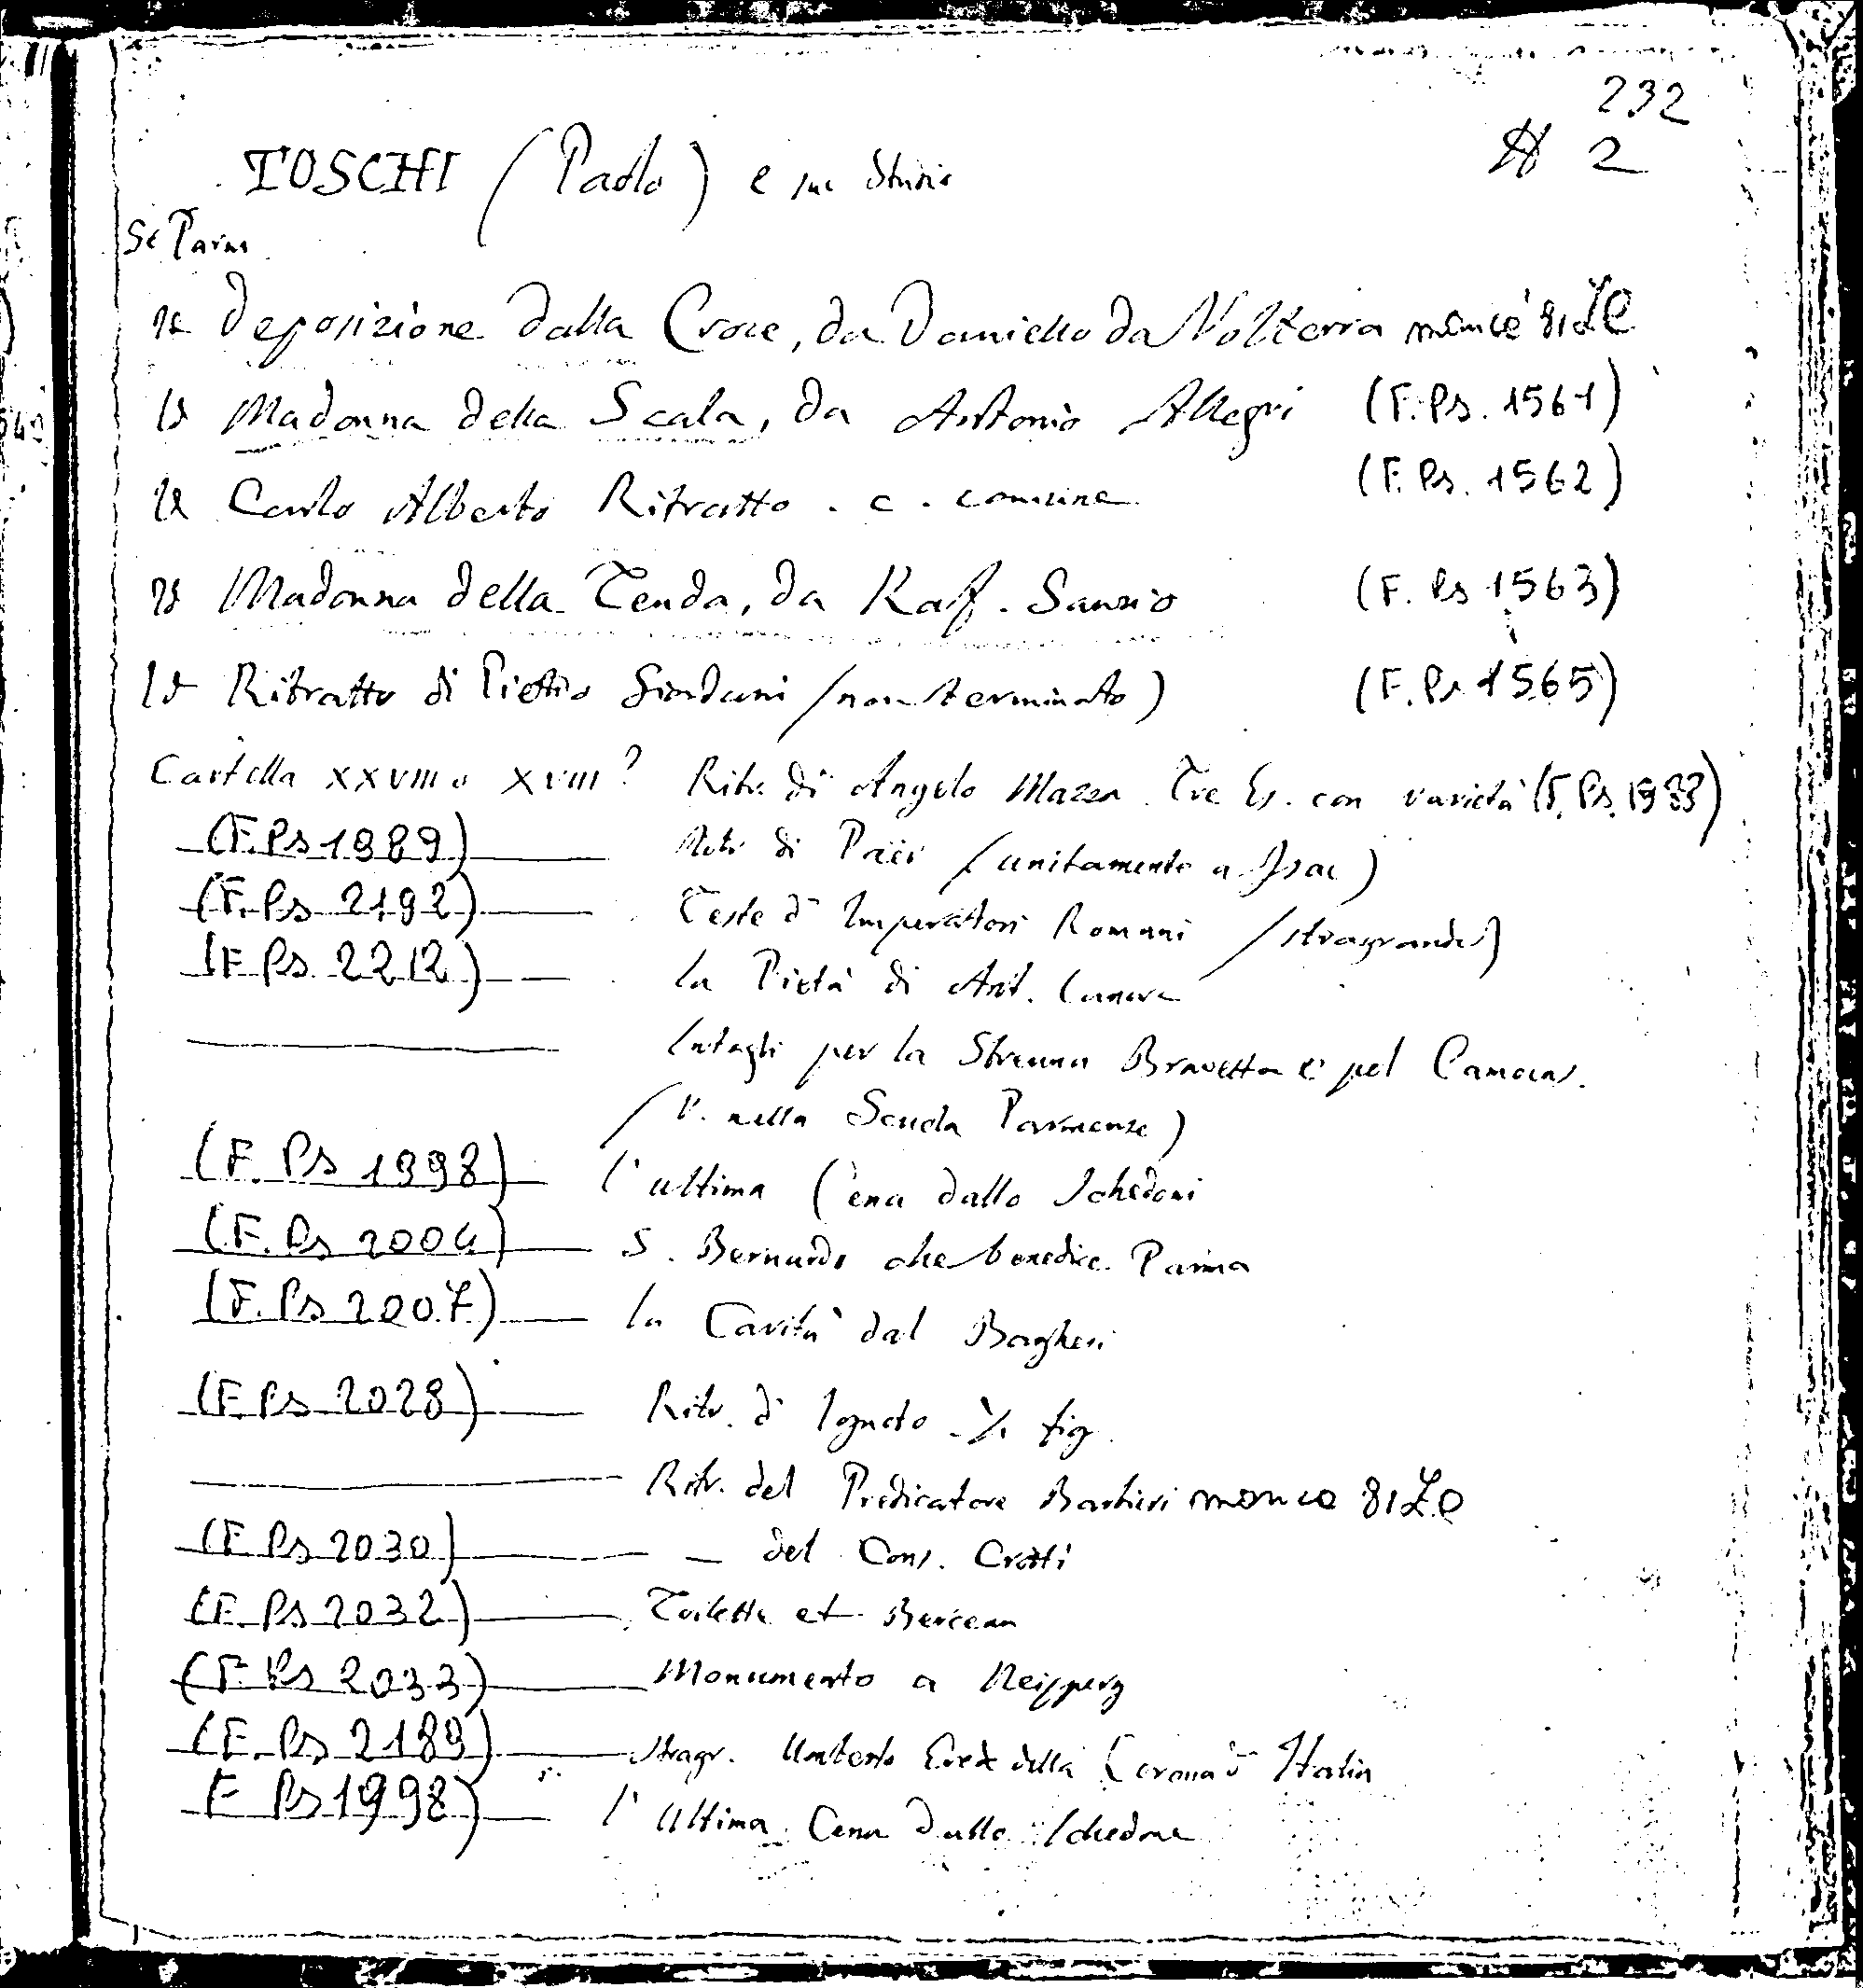 232
2
TOSCHI (Paolo) e suo Studio
Sc Parm
Deposizione dalla Croce, da Daniello da Volterra
Madonna della Scala, da Antonio Allegri (F.Ps. 1561)
Carlo Alberto Ritratto . c. comune (F.Ps. 1562)
Madonna della Tenda, da Raf. Sanzio (F. Ps 1563)
Ritratto di Pietro Giordani (non terminato) (F. Ps 1565)
Cartella XXVIII o XVIII? Ritr. di Angelo Mazza. Tre Es. con varietà (F. Ps. 1933)
(F.Ps 1989) Ritr di Paër (unitamente a Isac)
(F.Ps 2192) Teste d' Imperatori Romani (stragrande)
(F Ps 2212) La Pietà di Ant. Canova
Intagli per la Strenna Bravetta e pel Camoens.
(V. nella Scuola Parmense)
(F. Ps 1998) L'ultima Cena dallo Schedoni
(F. Ps 2004) S. Bernardo che benedice Parma
(F. Ps 2007) La Carità dal Borghesi
(F Ps 2028) Ritr. d' Ignoto ½ fig.
Ritr. del Predicatore Barbieri
(F Ps 2030) — del Cons. Crotti
(F Ps 2032) Toilette et Berceau
(F. Ps 2033) Monumento a Neipperg
(F. Ps 2189) stragr. Umberto Erede della Corona d' Italia
F Ps 1998) L'Ultima Cena dallo Schedone